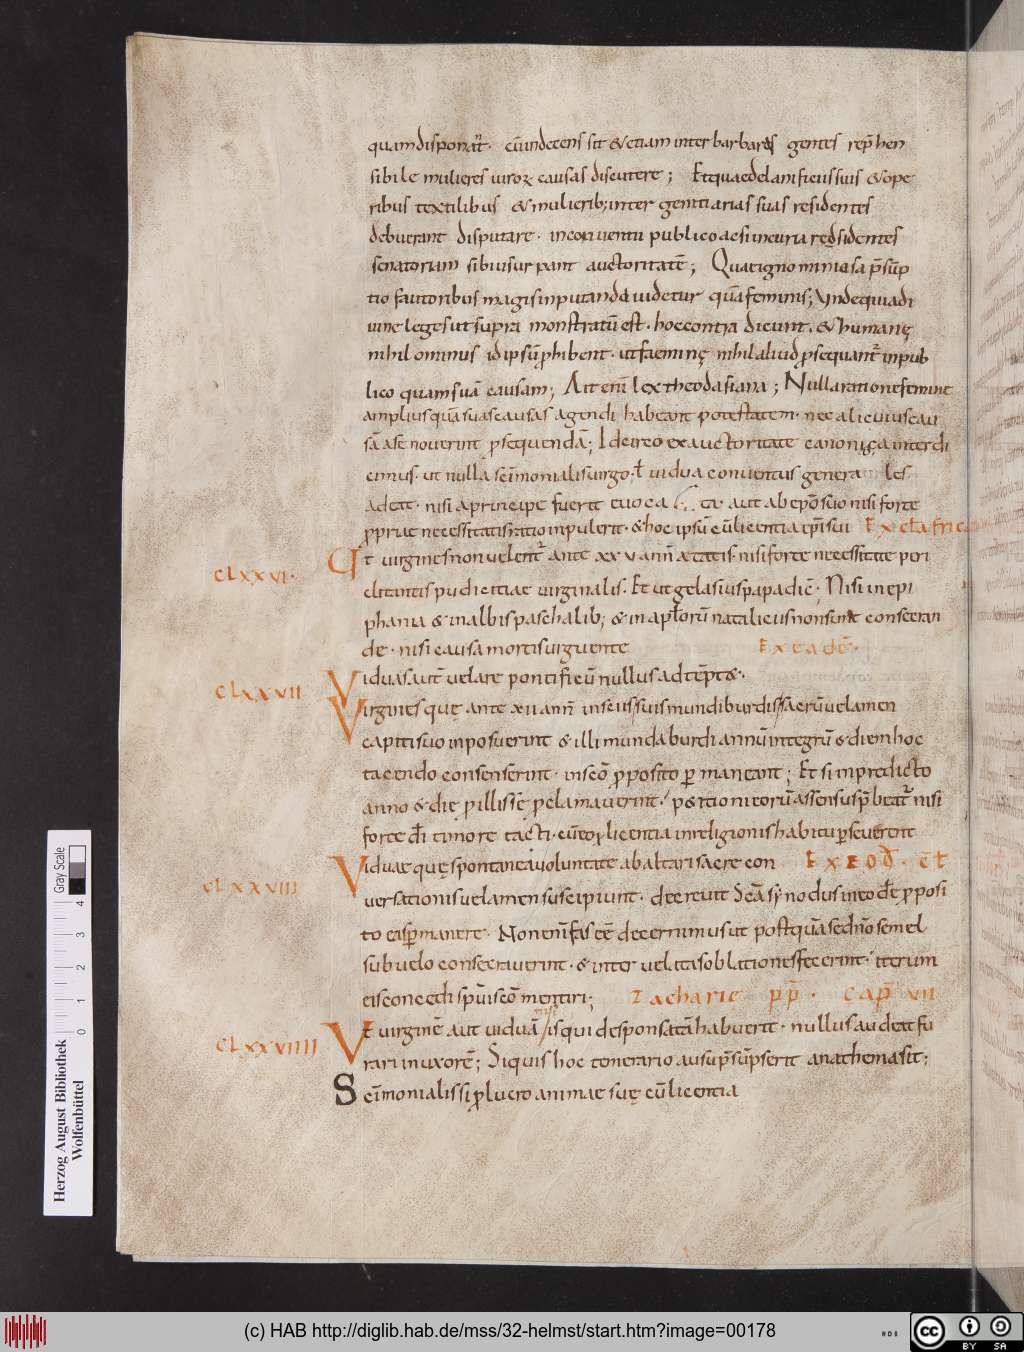 quam disponat̄. cū indecens sit & etiam inter barbaras gentes rep̄hen
sibile mulieres uiroꝝ causas discutere; Et quae de lanificiis suis & ope
ribus textilibus & mulierib; inter genitiarias suas residentes
debuerant disputare. in conuentu publico ac si in curia residentes
senatoriam sibi usurpant auctoritatē; Quae ignominiosa p̄sūp
tio fautoribus magis inputanda uidetur quā feminis; Unde quia di
uine leges ut supra monstratū est. hoc contra dicunt. & humanę
nihil ominus id ipsū ꝓhibent. ut faeminę nihil aliud ꝓsequant̄ in pub
lico quam suā causam; Ait enī lex theodosiana; Nulla ratione feminę
amplius quā suas causas agendi habeant potestatem. nec alicuius cau
sā a se nouerint ꝓsequendā; Idcirco ex auctoritate canonica interdi
cimus. ut nulla scīmonialis uirgo. ł uidua conuentus generales
adeat. nisi a principe fuerit euocata. aut ab ep̄o suo nisi forte
ꝓpriae necessitatis ratio inpulerit. & hoc ipsū cū licentia ep̄i sui Ex c̄ł africa
CLXXVI. Ut uirgines non uelent̄ ante xxv ann̄ aetatis. nisi forte necessitate peri
clitantis pudicitiae uirginalis. Et ut gelasius papa dic̄. Nisi in epi
phania & in albis paschalib; & in apłorū nataliciis non sunt consecran
de. nisi causa mortis urguente Ex eadē.
CLXXVII Viduas aut̄ uelare pontificū nullus adtēpt&.
Virgines quę ante xii ann̄ insciis suis mundiburdis sacrū uelamen
capiti suo inposuerint & illi mundaburdi annū integrū & diem hoc
tacendo consenserint. in scō ꝓposito ꝑmaneant; Et si in predicto
anno & die ꝓ illis se ꝓclamauerint. petitioni eorū assensus p̄beat̄ nisi
forte dī timore tacti. cū eoꝝ licentia in religionis habitu ꝑseuerent
CLXXVIII Viduae quę spontanea uoluntate ab altari sacre con Ex eod̄. c̄ł
uersationis uelamen suscipiunt. decreuit scā synodus in eodē ꝓposi
to eas ꝑmanere. Non enī fas eē decernimus ut postquā se dn̄o semel
sub uelo consecrauerint. & inter uelatas oblationes fecerint. iterum
eis concedi sp̄ui scō mentiri; Zacharie pp̄. cap̄ vii
CLXXVIIII Vt uirginē aut uiduā nisi is qui desponsatā habuerit. nullus audeat fu
rari in uxorē; Siquis hoc temerario ausu p̄sūpserit anathema sit;
Scīmonialis si ꝓ lucro animae suę cū licentia
Gray Scale
0 1 2 3 4
Herzog August Bibliothek
Wolfenbüttel
(c) HAB http://diglib.hab.de/mss/32-helmst/start.htm?image=00178
cc BY SA